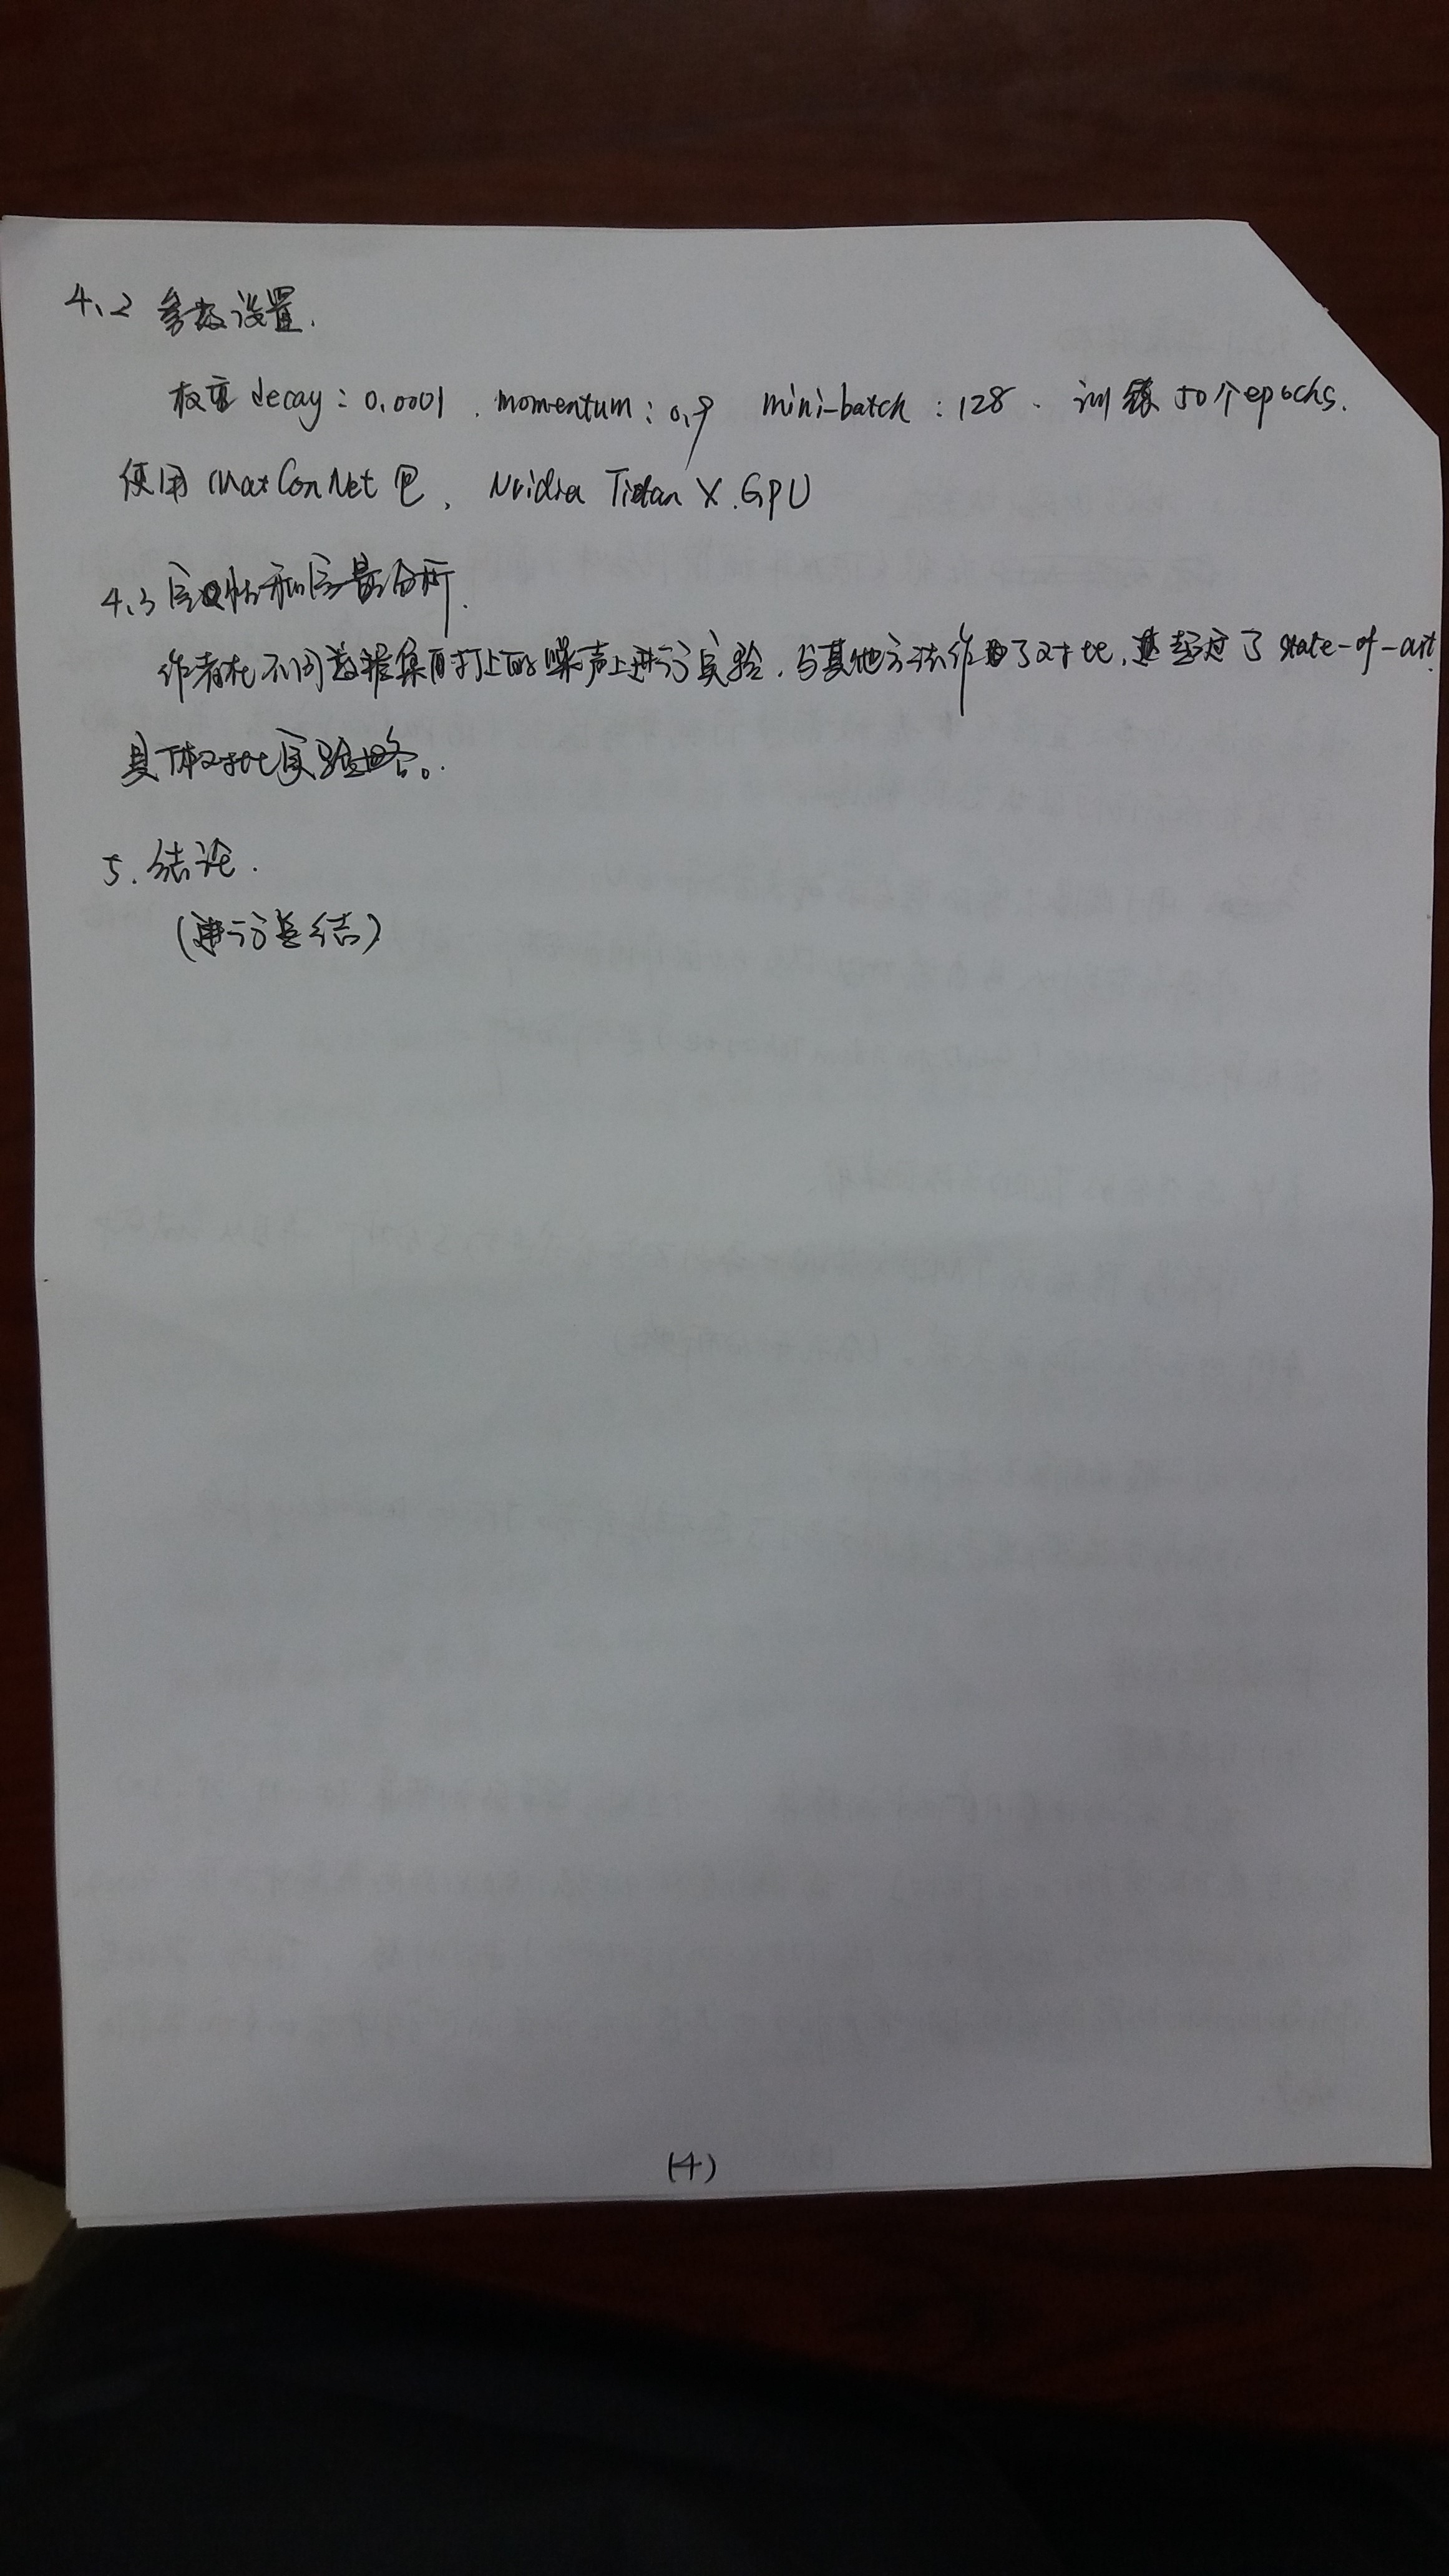 4、2 参数设置.
权重 decay：0.0001 . momentum：0.9 mini-batch：128 . 训练 50个epochs.
使用 MatConNet 包, Nvidia Titan X.GPU
4、3 定性和定量分析.
作者在不同数据集打上的噪声上进行实验, 与其他方法作了对比, 超过了 state-of-art.
具体对比实验略。
5. 结论.
(进行总结)
(4)